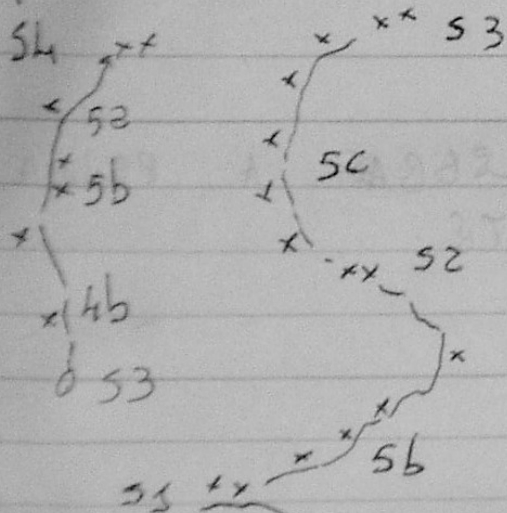 S4
5a
5b
4b
S3
S3
5c
S2
5b
S1